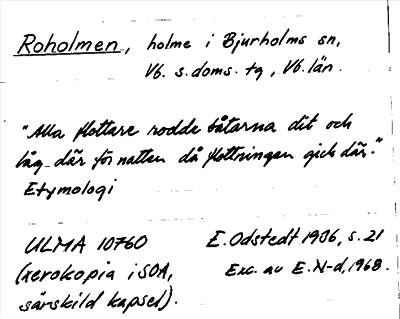 Roholmen, holme i Bjurholms sn,
Vb. s. doms. tg, Vb. län.
"Alla flottare rodde båtarna dit och
låg där för natten då flottningen gick där."
Etymologi
ULMA 10760 E. Odstedt 1936, s. 21
(xerokopia i SOA, Exc. av E. N-d, 1968.
särskild kapsel).